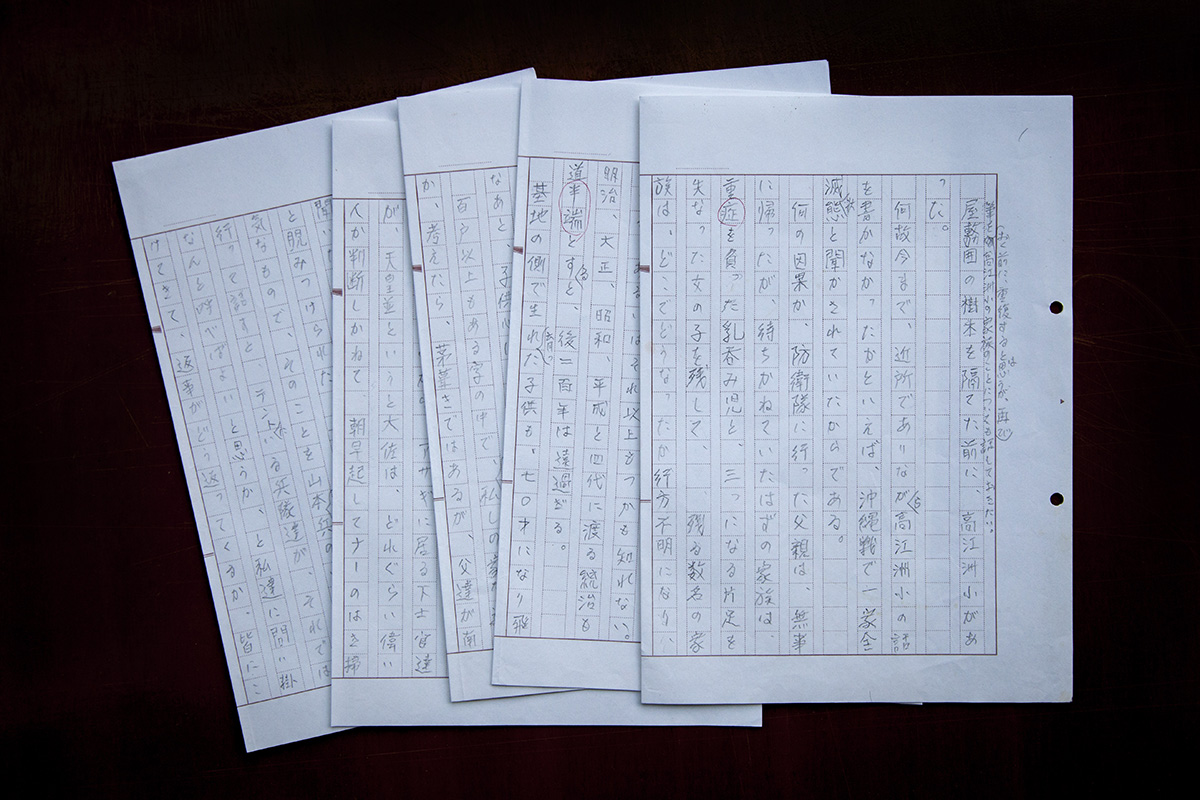 屋敷囲の樹木を隔てた前に、高江洲小があ
った。
何故今まで、近所でありながら高江洲小の話
を書かなかったかといえば、沖縄戦で一家全
滅状態と聞かされていたからである。
何の因果か、防衛隊に行った父親は、無事
に帰ったが、待ちかねていたはずの家族は、
重症を負った乳呑み児と、三つになる片足を
失なった女の子を残して、残る数名の家
族は、どこでどうなったか行方不明になり、
それ以上もつかも知れない。
明治、大正、昭和、平成と四代に渡る統治も
道半端とすると、後二百年は遠過ぎる。
基地の側で生れ育った子供も、七〇才になり
なあと、子供心
百戸以上もある字の中で、私しの
か、考えたら、茅葺きではあるが、父達が南
に居る下士官達
が、天皇並というと大佐は、どれぐらい偉い
人か判断しかねて、朝早起してナーのはき掃
と睨みつけられた
気なもので、そのことを山本兵の
行って話すと、テントにいる兵隊達が、それでは
なんと呼べばよいと思うか、と私達に問い掛
けてきて、返事がどう返ってくるか、皆にこ